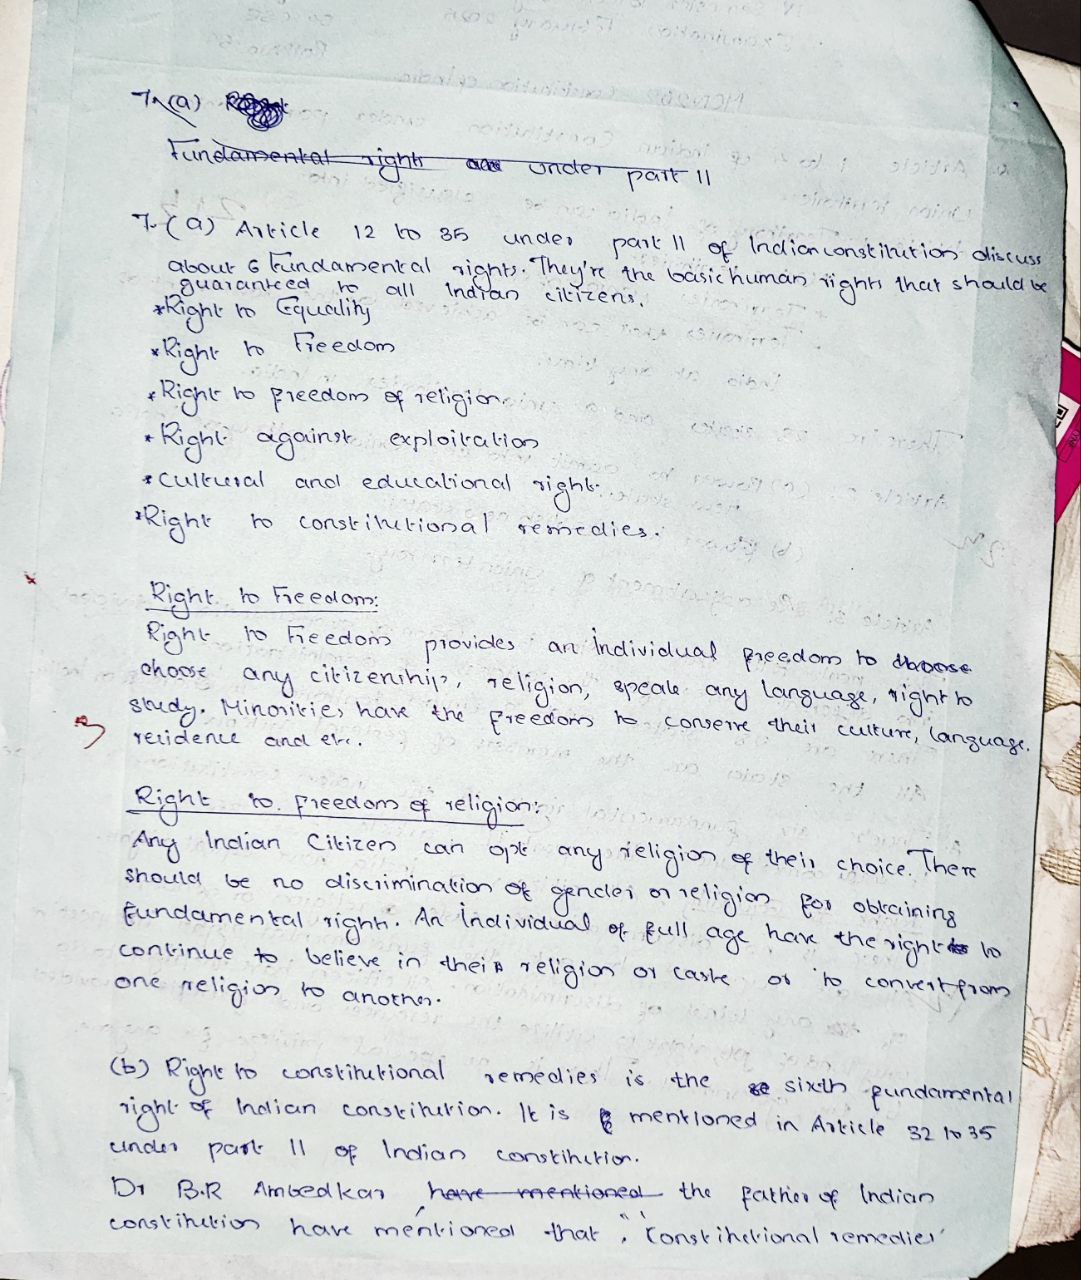 7.(a)
Fundamental right under part II
7.(a) Article 12 to 35 under part II of Indian constitution discuss
about 6 Fundamental rights. They're the basic human rights that should be
guaranteed to all Indian citizens.
*Right to Equality
*Right to Freedom
*Right to freedom of religion.
*Right against exploitation
*cultural and educational right.
*Right to constitutional remedies.
Right to Freedom:
Right to Freedom provides an individual freedom to
choose any citizenship, religion, speak any language, right to
study. Minorities have the freedom to conserve their culture, language.
residence and etc.
3
Right to freedom of religion:
Any Indian Citizen can opt any religion of their choice. There
should be no discrimination of gender or religion for obtaining
fundamental right. An individual of full age have the right to
continue to believe in their religion or caste or to convert from
one religion to another.
(b) Right to constitutional remedies is the sixth fundamental
right of Indian constitution. It is mentioned in Article 32 to 35
under part II of Indian constitution.
Dr B.R Ambedkar have mentioned the father of Indian
constitution have mentioned that, "constitutional remedies"